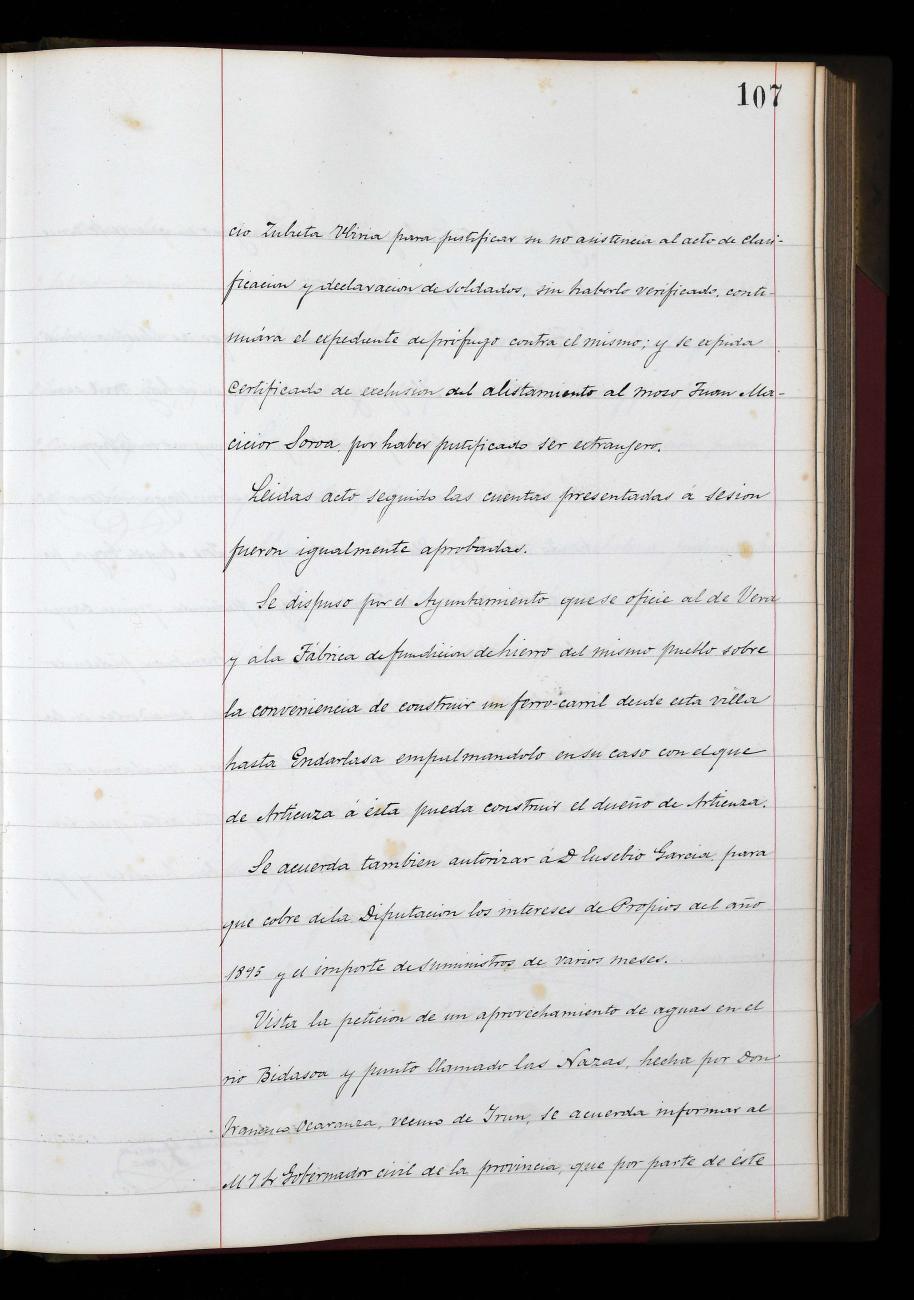 107
cio Zubeta Ubiria para justificar su no asistencia al acto de clasi-
ficacion y declaracion de soldados, sin haberlo verificado, conti-
nuára el espediente de prófugo contra el mismo; y se espida
certificado de exclusion del alistamiento al mozo Juan Ma-
cicior Soroa, por haber justificado ser estranjero.
Leidas acto seguido las cuentas presentadas á sesion
fueron igualmente aprobadas.
Se dispuso por el Ayuntamiento que se oficie al de Vera
y á la Fábrica de fundicion de hierro del mismo pueblo sobre
la conveniencia de construir un ferro-carril desde esta villa
hasta Endarlasa empalmandolo en su caso con el que
de Articuza á ésta pueda construir el dueño de Articuza.
Se acuerda tambien autorizar á D Eusebio Garcia para
que cobre de la Diputacion los intereses de Propios del año
1895 y el importe de suministros de varios meses.
Vista la peticion de un aprovechamiento de aguas en el
rio Bidasoa y punto llamado las Nazas, hecha por Don
Francisco Ocaranza, vecino de Irun, se acuerda informar al
Gobernador civil de la provincia, que por parte de éste